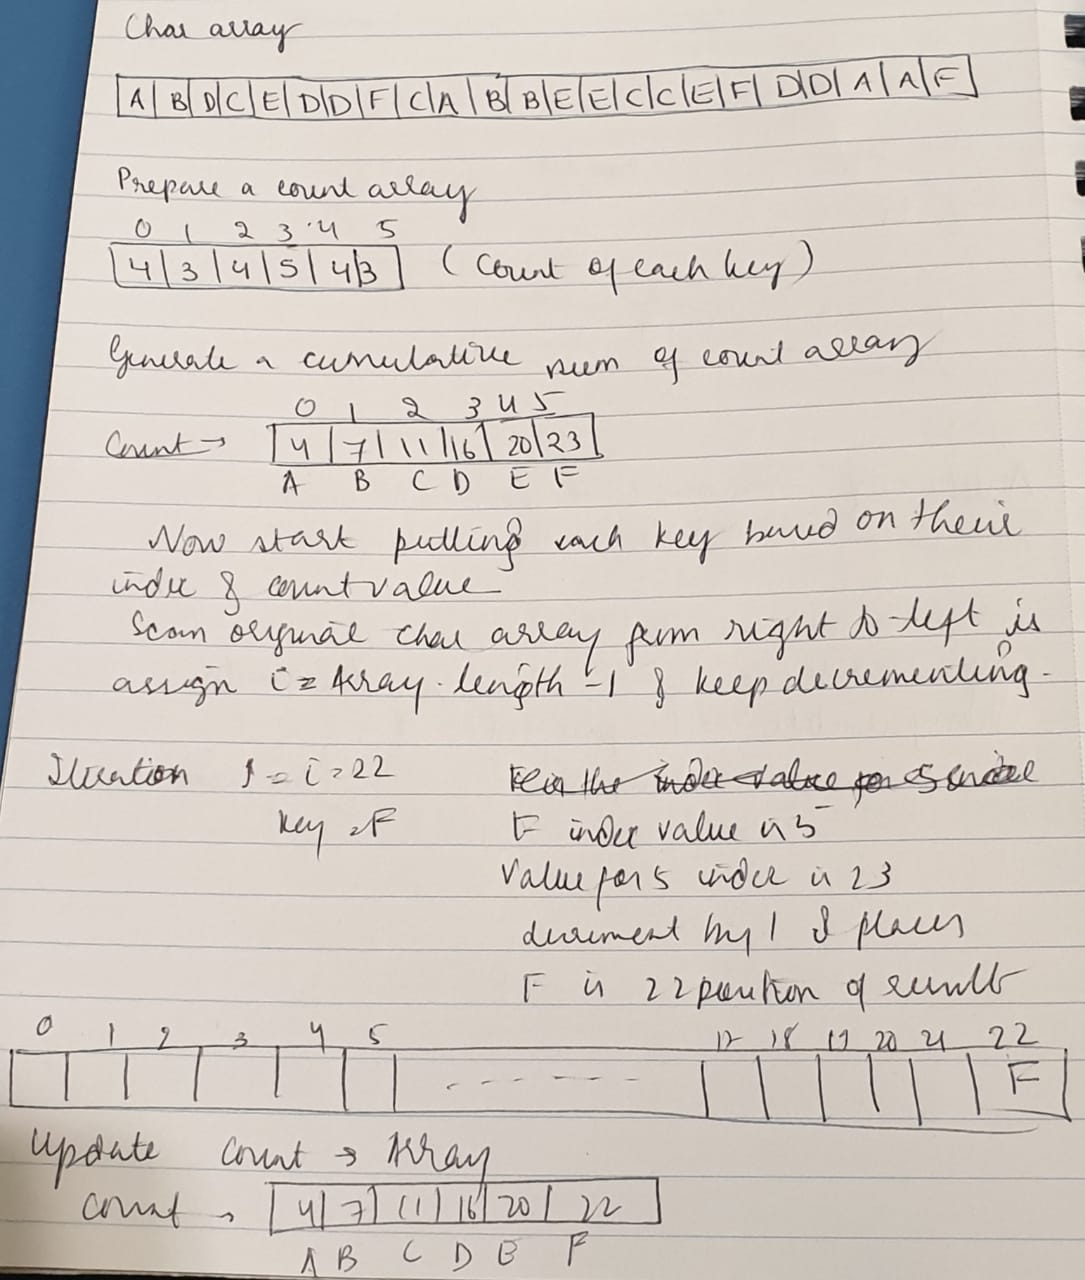 Char array
A | B | D | C | E | D | D | F | C | A | B | B | E | E | C | C | E | F | D | D | A | A | F
Prepare a count array
0 1 2 3 4 5
4 | 3 | 4 | 5 | 4 | 3 (Count of each key)
Generate a cumulative sum of count array
0 1 2 3 4 5
Count → 4 | 7 | 11 | 16 | 20 | 23
A B C D E F
Now start putting each key based on their
index & count value
Scan original char array from right to left is
assign i = Array.length -1 & keep decrementing.
Iteration 1 = i = 22
Key = F F index value is 5
Value for 5 index is 23
decrement by 1 & places
F in 22 position of result
0 1 2 3 4 5 17 18 19 20 21 22
----- F
Update count → Array
count → 4 | 7 | 11 | 16 | 20 | 22
A B C D E F